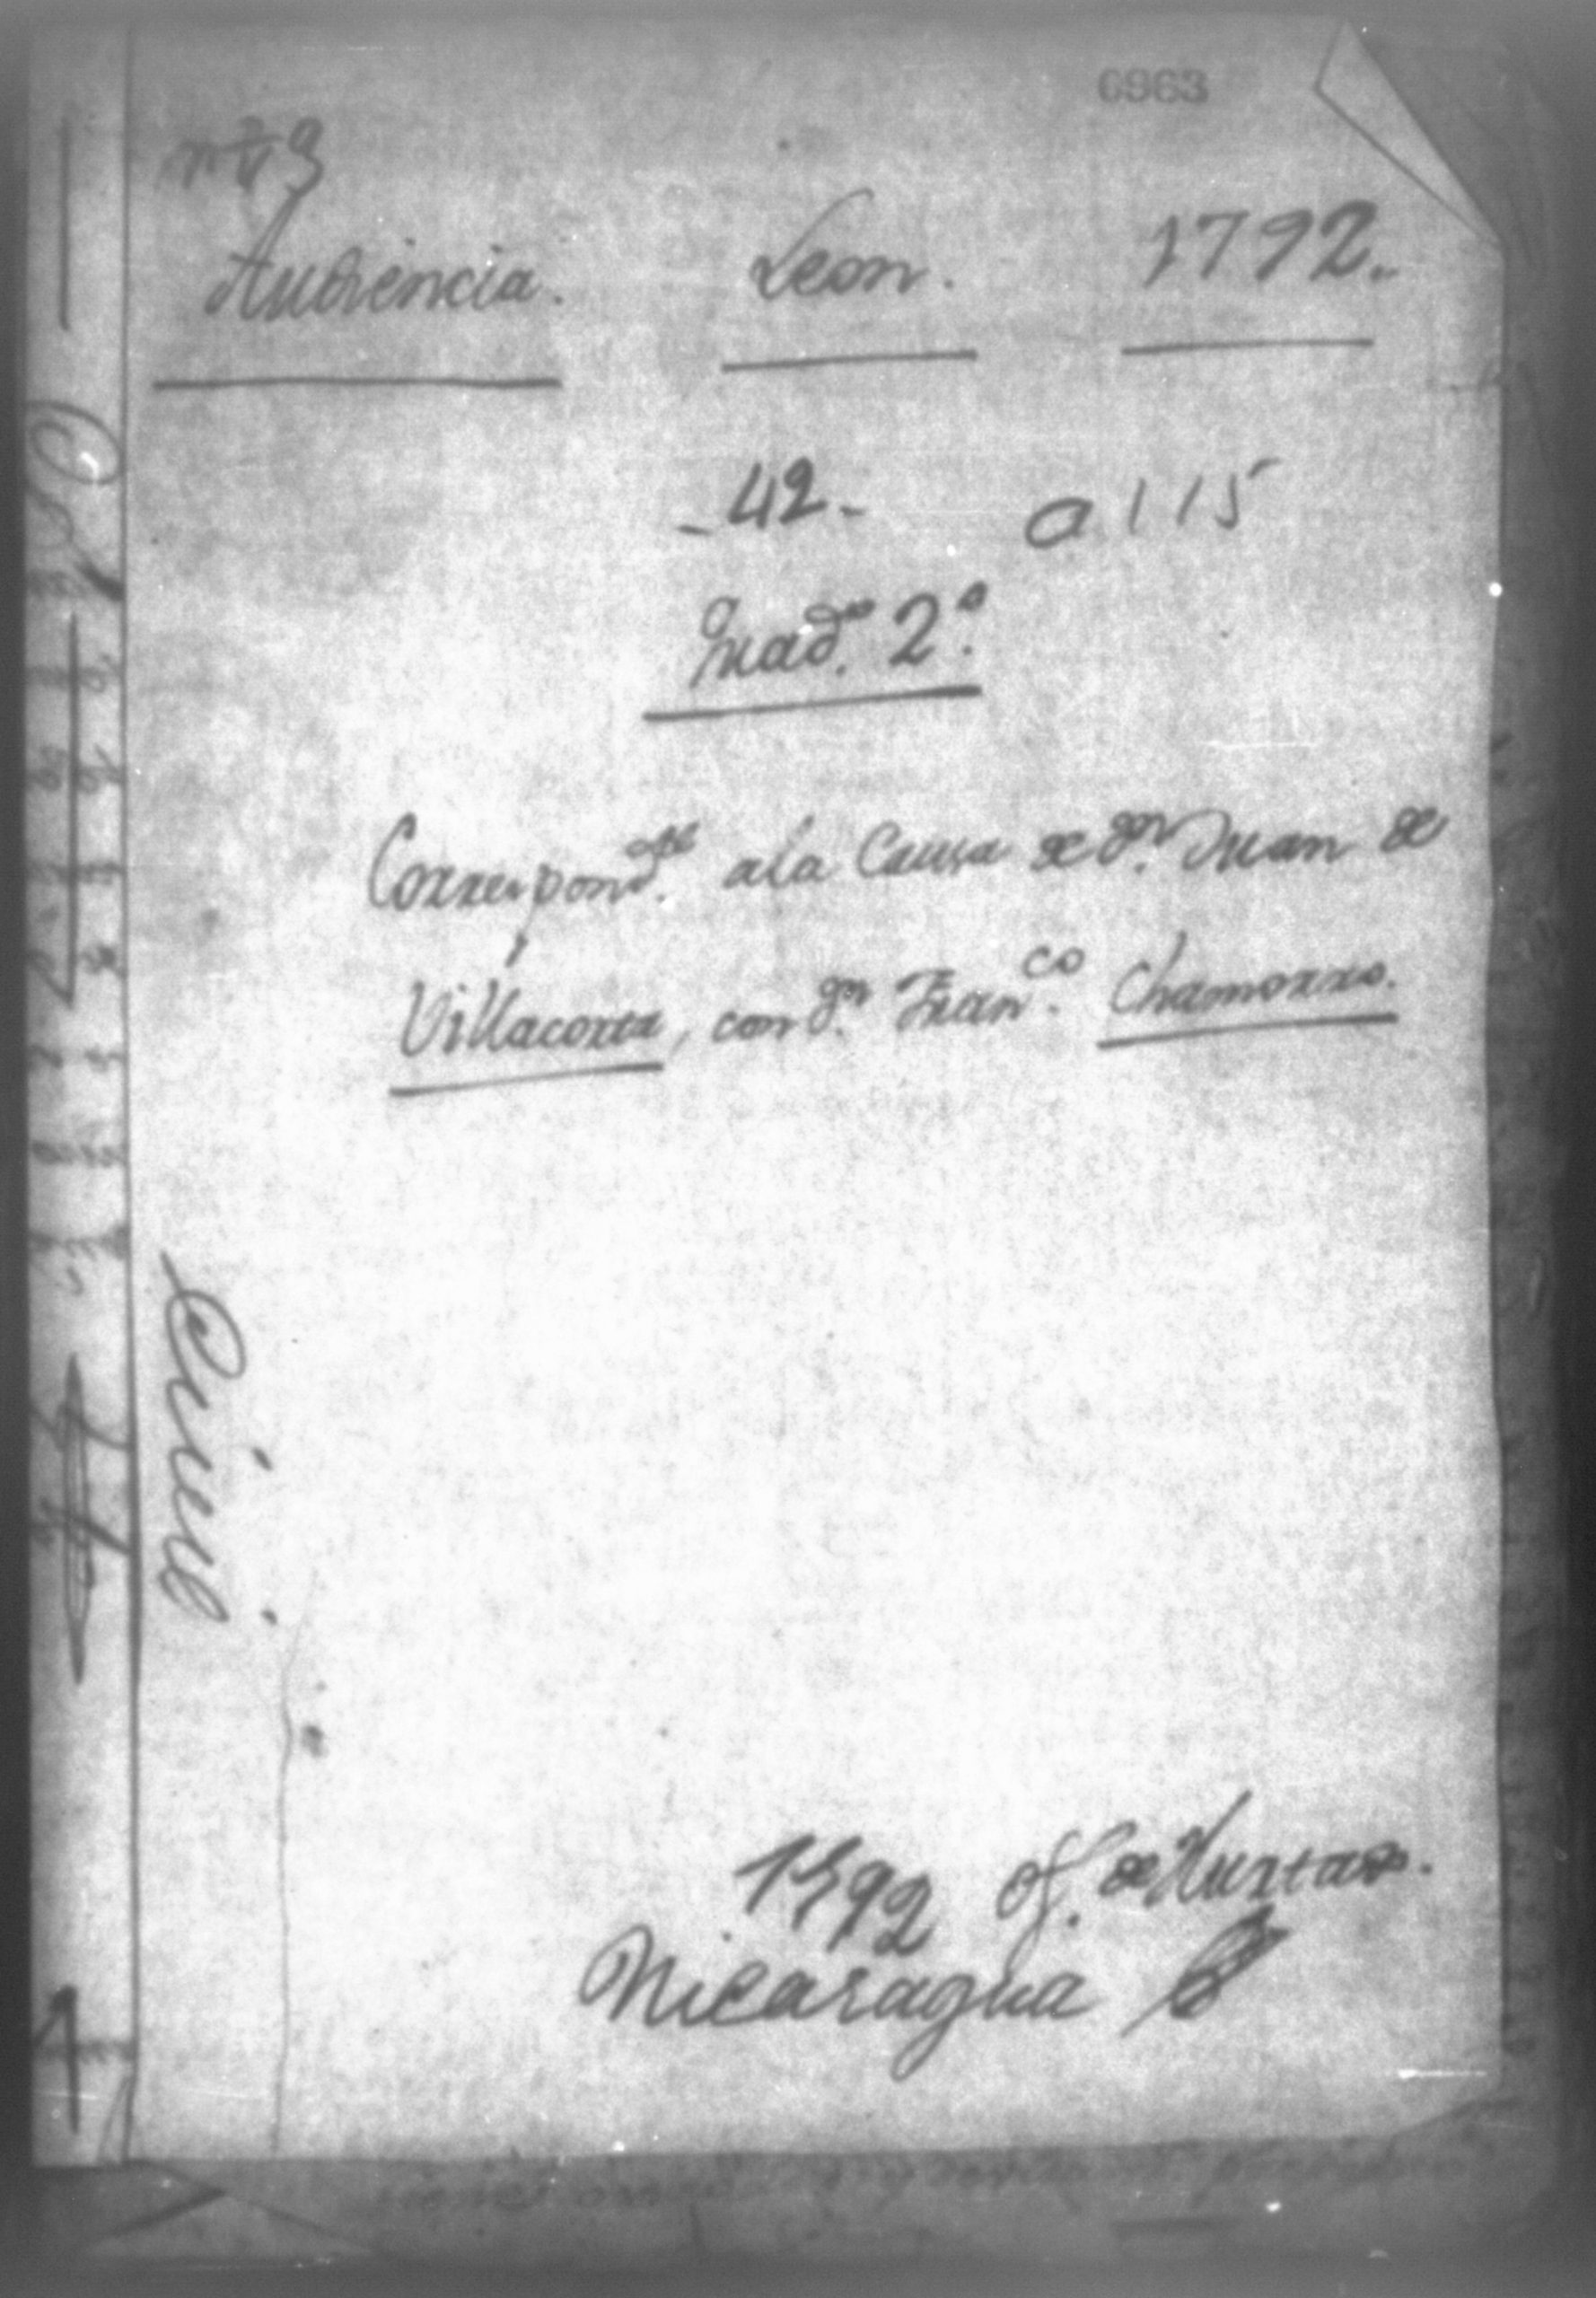 6963
Audiencia. Leon. 1792.
- 42 - a 115
Quad.º 2.º
Correspond.te a la Causa de d.n Juan de
Villacorta, con d.n Fran.co Chamorro.
Civil
1792 of. de Hurtado.
Nicaragua